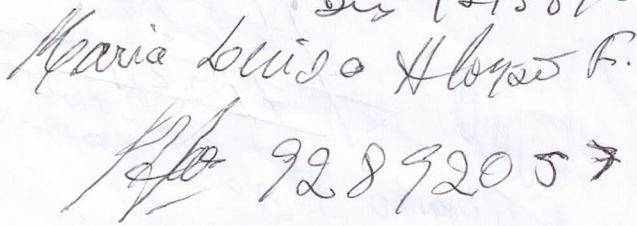 Maria Luisa Alonso F.
92892057